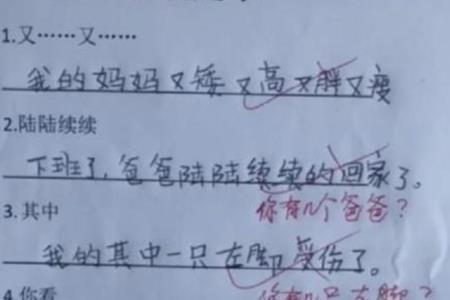 1.又……又……
我的妈妈又矮又高又胖又瘦
2.陆陆续续
下班了,爸爸陆陆续续的回家了。
3.其中
你有几个爸爸?
我的其中一只左脚受伤了。
4.你看
你有几只左脚?